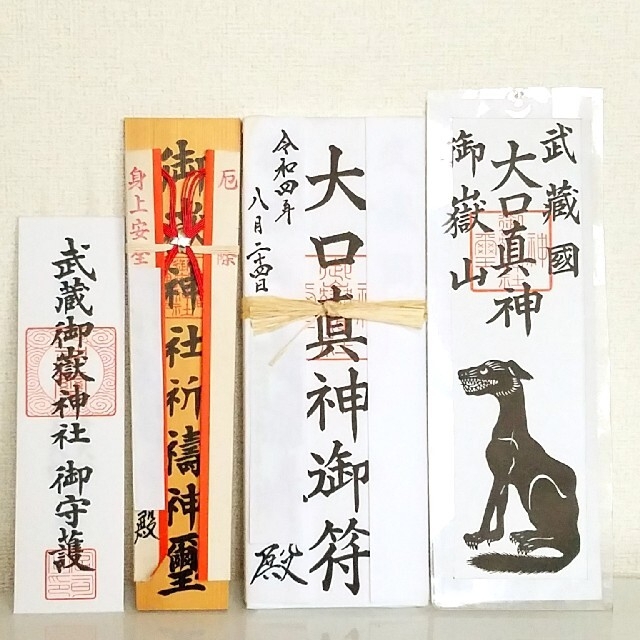 武蔵御嶽神社 御守護
厄除
御嶽神社祈禱神璽
身上安全
殿
大口真神御符
令和四年
八月二十四日
殿
武蔵國
大口真神
御嶽山